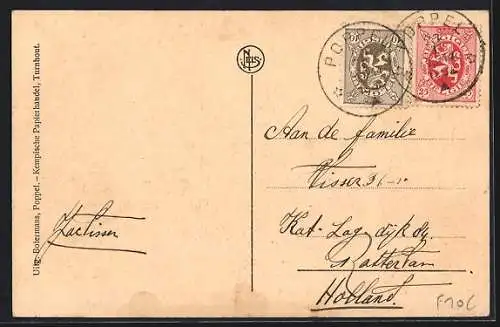 Uitg. Botermans, Poppel. – Kempische Papierhandel, Turnhout.
NELS
POPPEL
POPPEL
10
25
Aan de familie
Visser
Kat. Lag. dijk
Rotterdam
Holland.
F10C